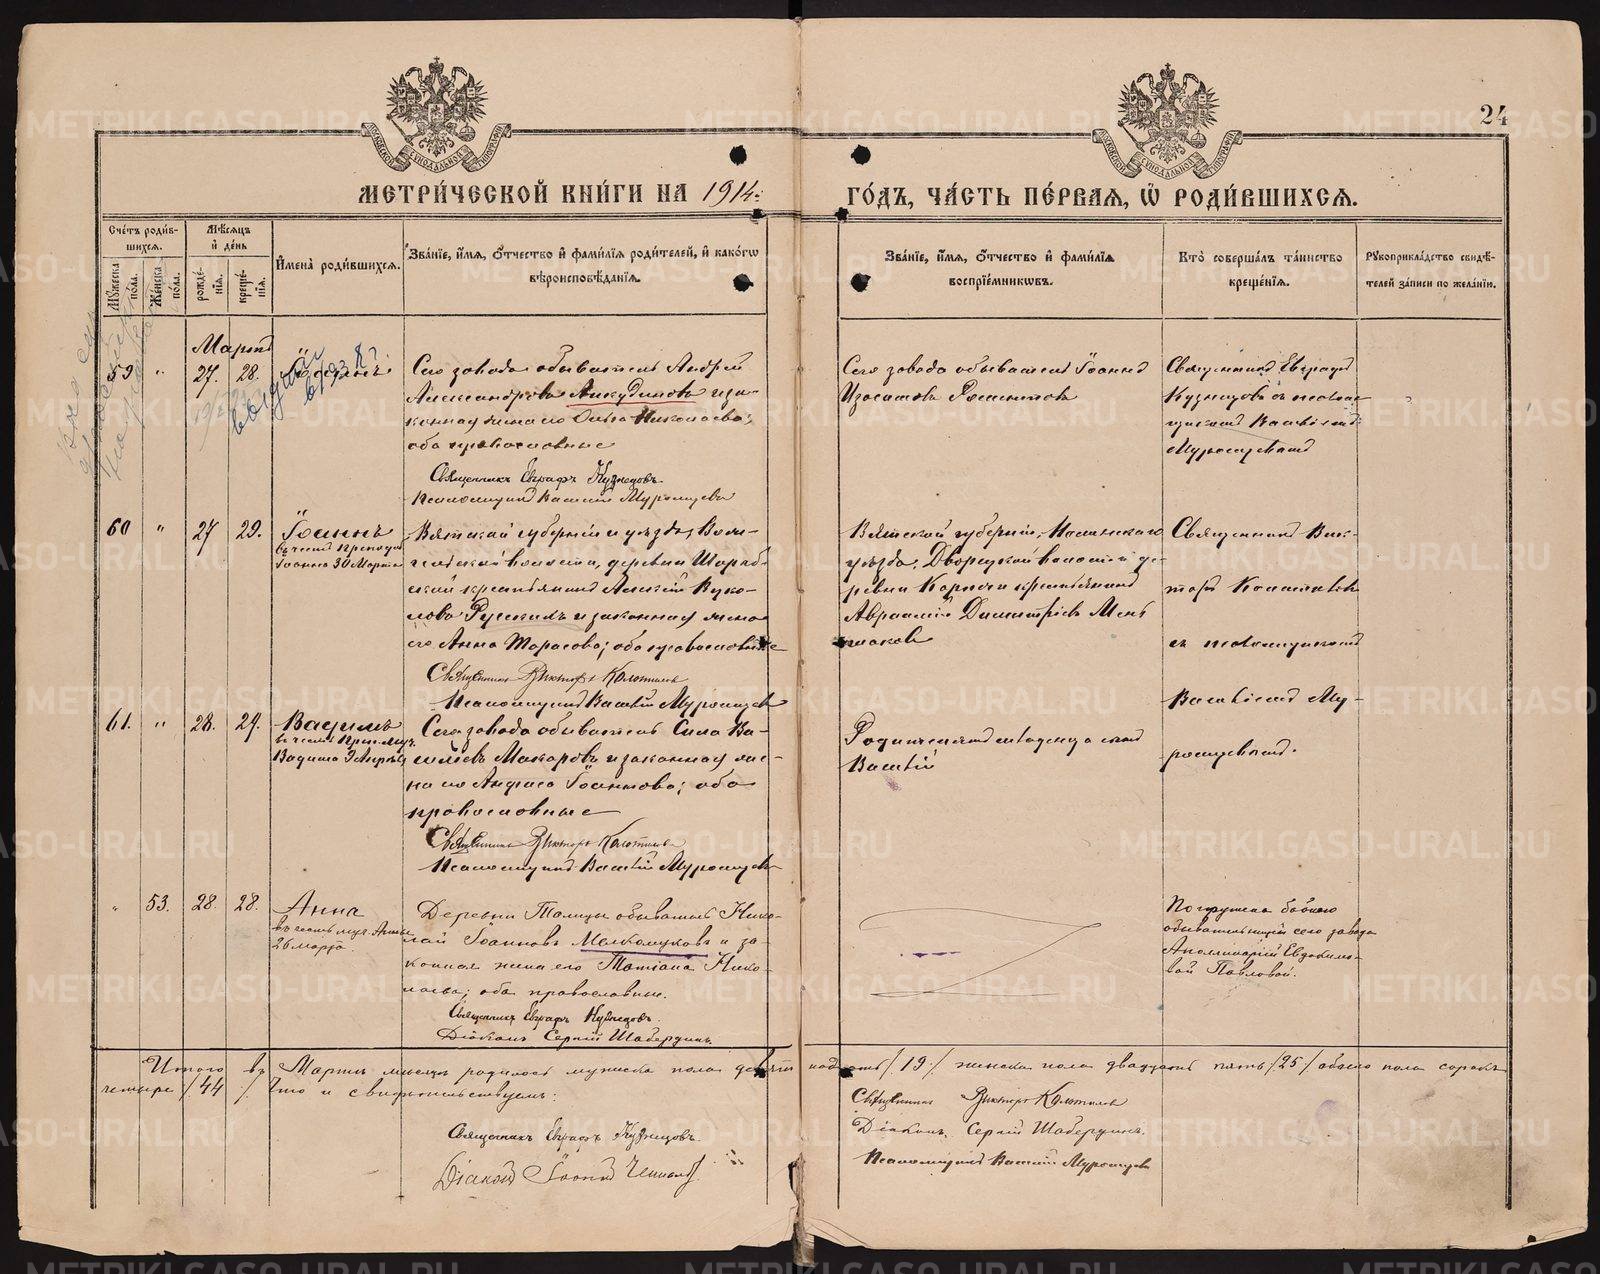 24
МЕТРИ́ЧЕСКОЙ КНИ́ГИ НА 1914:
ГО́ДЪ, ЧА́СТЬ ПЕ́РВАЯ, Ѡ РОДИ́ВШИХСЯ.
Сче́тъ роди́в-
шихся.
Му́жеска по́ла.
Же́нска по́ла.
Мѣ́сяцъ
и де́нь
рожде́-
нія.
креще́-
нія.
Имена̀ роди́вшихся.
Зва́ніе, и́мя, о́тчество и фами́лія роди́телей, и како́гѡ
вѣроисповѣ́данія.
Зва́ніе, и́мя, о́тчество и фами́лія
воспріе́мникѡвъ.
Кто̀ соверша́лъ та́инство
креще́нія.
Рукоприкла́дство свидѣ́-
телей за́писи по жела́нію.
Мартъ
59 " 27. 28.
Сего завода обыватель Андрей
Александровъ Анкудиновъ и за-
конная жена его Ольга Николаева;
оба православные
Священникъ Евграфъ Кузнецовъ.
Псаломщикъ Василій Муромцевъ
Сего завода обыватель Іоаннъ
Священникъ Евграфъ
Кузнецовъ съ псалом-
щикомъ Василіемъ
Муромцевымъ
60 " 27 29. Іоаннъ
въ честь препод.
Іоанна 30 Марта
Вятской губерніи и уѣзда,
волости, деревни
крестьянинъ Алексѣй Вуко-
ловъ Русскихъ и законная жена
его Анна Тарасова; оба православные
Священникъ Викторъ Колотиловъ
Псаломщикъ Василій Муромцевъ
Вятской губерніи, Нолинскаго
уѣзда, Дворецкой волости де-
ревни крестьянинъ
Авраамій Димитріевъ Мень
шаковъ
Священникъ Вик-
торъ Колотиловъ
съ псаломщикомъ
Василіемъ Му-
ромцевымъ.
61. " 28. 29. Вадимъ
въ честь преп. муч.
Вадима 9 Апрѣля
Сего завода обыватель Сила Ва-
сильевъ Макаровъ и законная же-
на его; оба
православные
Священникъ Викторъ Колотиловъ
Псаломщикъ Василій Муромцевъ
Василій
" 53. 28. 28. Анна
въ честь муч. Анны
26 марта.
Деревни Талицы обыватель Нико-
лай Іоанновъ Мелкомуковъ и за-
конная жена его Татіана Нико-
лаева; оба православные.
Священникъ Евграфъ Кузнецовъ.
Діаконъ Сергій Шабердинъ.
Погружена бабкою
обывательницей сего завода
Аполлинаріей Евдокимо-
вой Павловой.
Итого въ Мартѣ мѣсяцѣ родилось мужска пола девятнадцать /19/ женска пола двадцать пять /25/ обоего пола сорокъ
четыре /44/. Что и свидѣтельствуемъ:
Священникъ Евграфъ Кузнецовъ.
Діаконъ Іоаннъ
Священникъ Викторъ Колотиловъ
Діаконъ Сергій Шабердинъ.
Псаломщикъ Василій Муромцевъ
METRIKI.GASO-URAL.RU